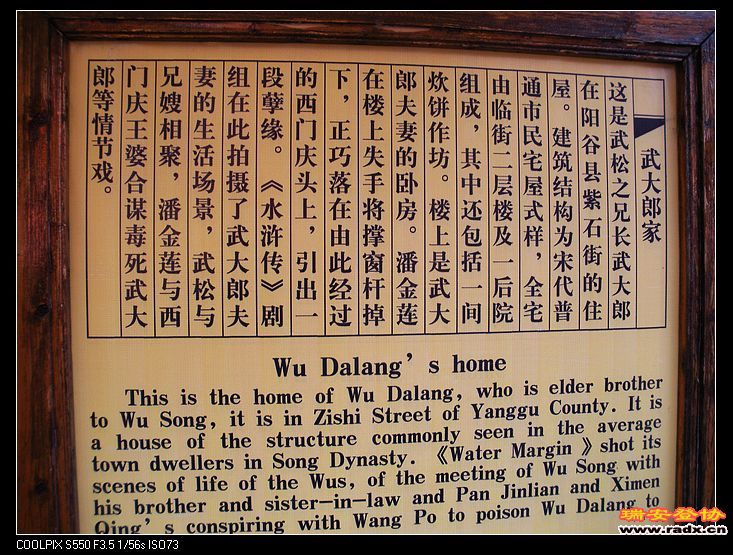 武大郎家
这是武松之兄长武大郎
在阳谷县紫石街的住
屋。建筑结构为宋代普
通市民宅屋式样，全宅
由临街二层楼及一后院
组成，其中还包括一间
炊饼作坊。楼上是武大
郎夫妻的卧房。潘金莲
在楼上失手将撑窗杆掉
下，正巧落在由此经过
的西门庆头上，引出一
段孽缘。《水浒传》剧
组在此拍摄了武大郎夫
妻的生活场景，武松与
兄嫂相聚，潘金莲与西
门庆王婆合谋毒死武大
郎等情节戏。
Wu Dalang's home
This is the home of Wu Dalang, who is elder brother
to Wu Song, it is in Zishi Street of Yanggu County. It is
a house of the structure commonly seen in the average
town dwellers in Song Dynasty. 《Water Margin 》shot its
scenes of life of the Wus, of the meeting of Wu Song with
his brother and sister-in-law and Pan Jinlian and Ximen
Qing's conspiring with Wang Po to poison Wu Dalang to
瑞安登协
www.radx.cn
COOLPIX S550 F3.5 1/56s ISO73